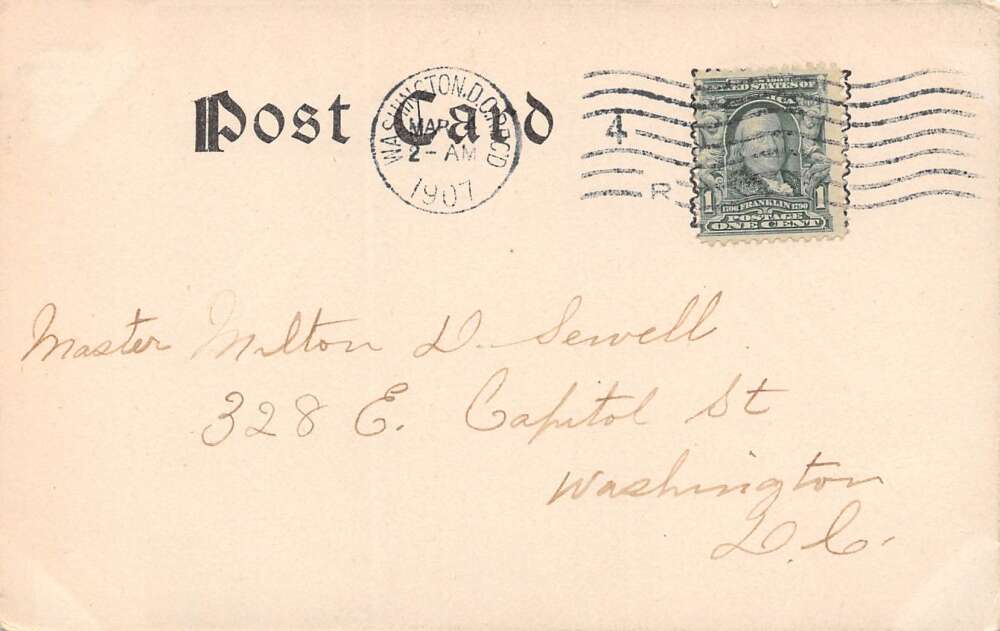 Post Card
WASHINGTON, D.C.
MAR
2- AM
1907
4
R
UNITED STATES OF
AMERICA
1 1706 FRANKLIN 1790 1
POSTAGE
ONE CENT
Master Milton D. Sewell
328 E. Capitol St
Washington
D.C.